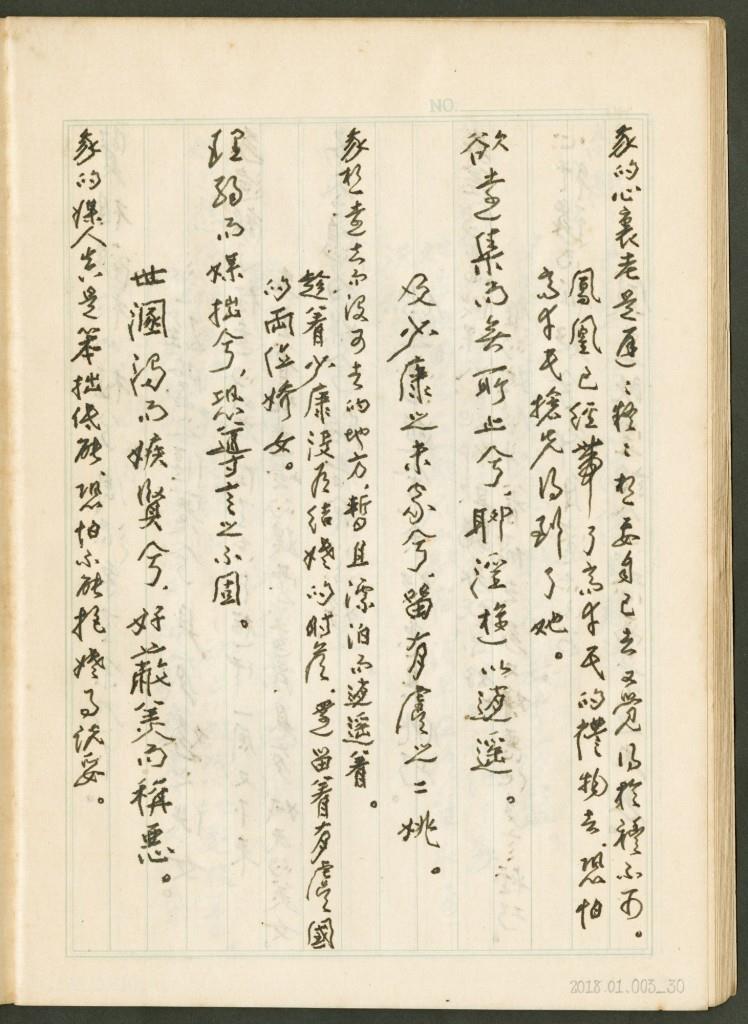 NO.
我的心裏老是遲遲疑疑,想要自己去又覺得於禮不可。
鳳凰已經帶了高辛氏的禮物去,恐怕
高辛氏搶先得到了她。
欲遠集而無所止兮,聊淫遊以逍遙。
及少康之未家兮,留有虞之二姚。
我想遠去而沒可去的地方,暫且漂泊而逍遙着。
趁着少康沒有結婚的時候,還留着有虞國
的兩位嬌女。
理弱而媒拙兮,恐導言之不固。
世溷濁而嫉賢兮,好蔽美而稱惡。
我的媒人真是笨拙低能,恐怕不能把婚事說妥。
2018.01.003_30